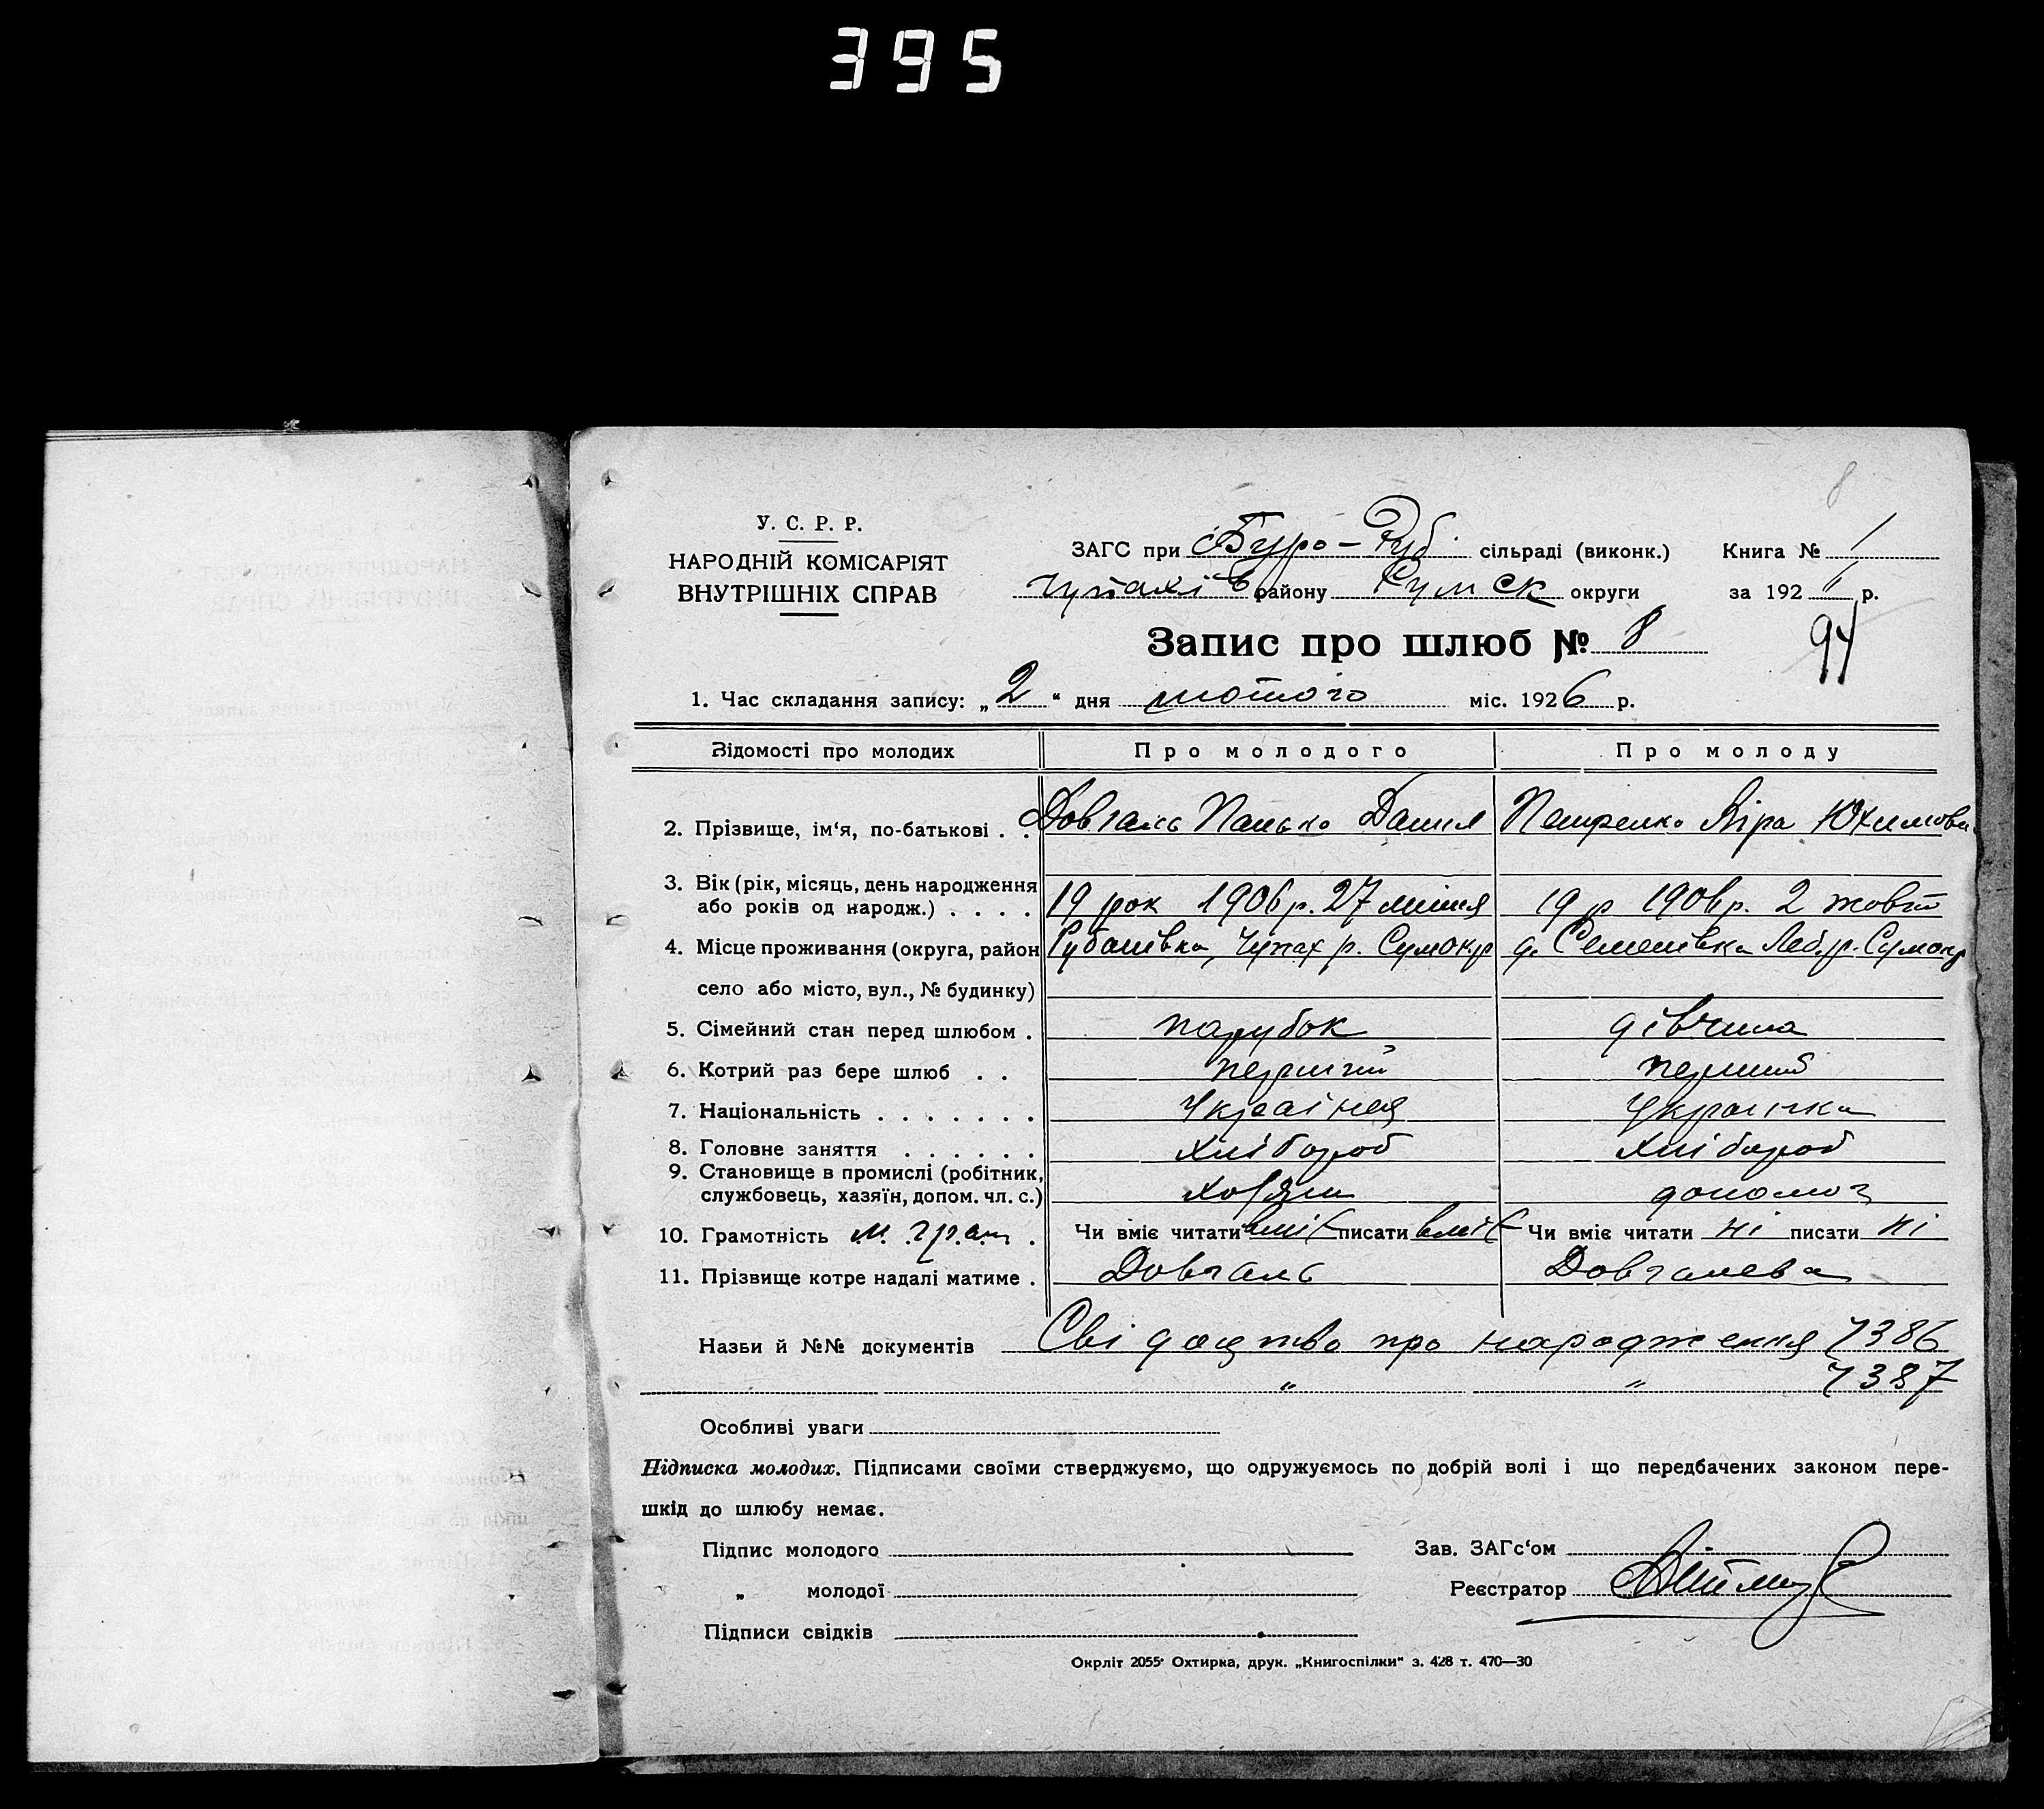 395
8
У. С. Р. Р.
НАРОДНІЙ КОМІСАРІЯТ
ВНУТРІШНІХ СПРАВ
ЗАГС при Буро-Руб. сільраді (виконк.) Книга № 1
Чупахів району Сумск округи за 1926 р.
Запис про шлюб № 8
94
1. Час складання запису: „2“ дня лютого міс. 1926 р.
Відомості про молодих Про молодого Про молоду
2. Прізвище, ім‘я, по-батькові . . Довгаль Панько Данил Петренко Віра Юхимовн
3. Вік (рік, місяць, день народження
або років од народж.) . . . . 19 рок 1906 р. 27 липня 19 р 1906 р. 2 жовт
4. Місце проживання (округа, район Рубанівка, Чупах р. Сумокр д. Семенівка Леб. р. Сумокр
село або місто, вул., № будинку)
5. Сімейний стан перед шлюбом . парубок дівчина
6. Котрий раз бере шлюб . . перший перший
7. Національність . . . . . . . Українец Украинка
8. Головне заняття . . . . . . хлібороб хлібороб
9. Становище в промислі (робітник,
службовець, хазяїн, допом. чл. с.) хозяин допомог
10. Грамотність м. грам. Чи вміє читати вміє писати вміє Чи вміє читати ні писати ні
11. Прізвище котре надалі матиме . Довгаль Довгалева
Назви й №№ документів Свідоцтво про народження 7386
„ „ 7387
Особливі уваги
Підписка молодих. Підписами своїми стверджуємо, що одружуємось по добрій волі і що передбачених законом пере-
шкід до шлюбу немає.
Підпис молодого Зав. ЗАГс‘ом
„ молодої Реєстратор
Підписи свідків
Окрліт 2055· Охтирка, друк. „Книгоспілки“ з. 428 т. 470—30